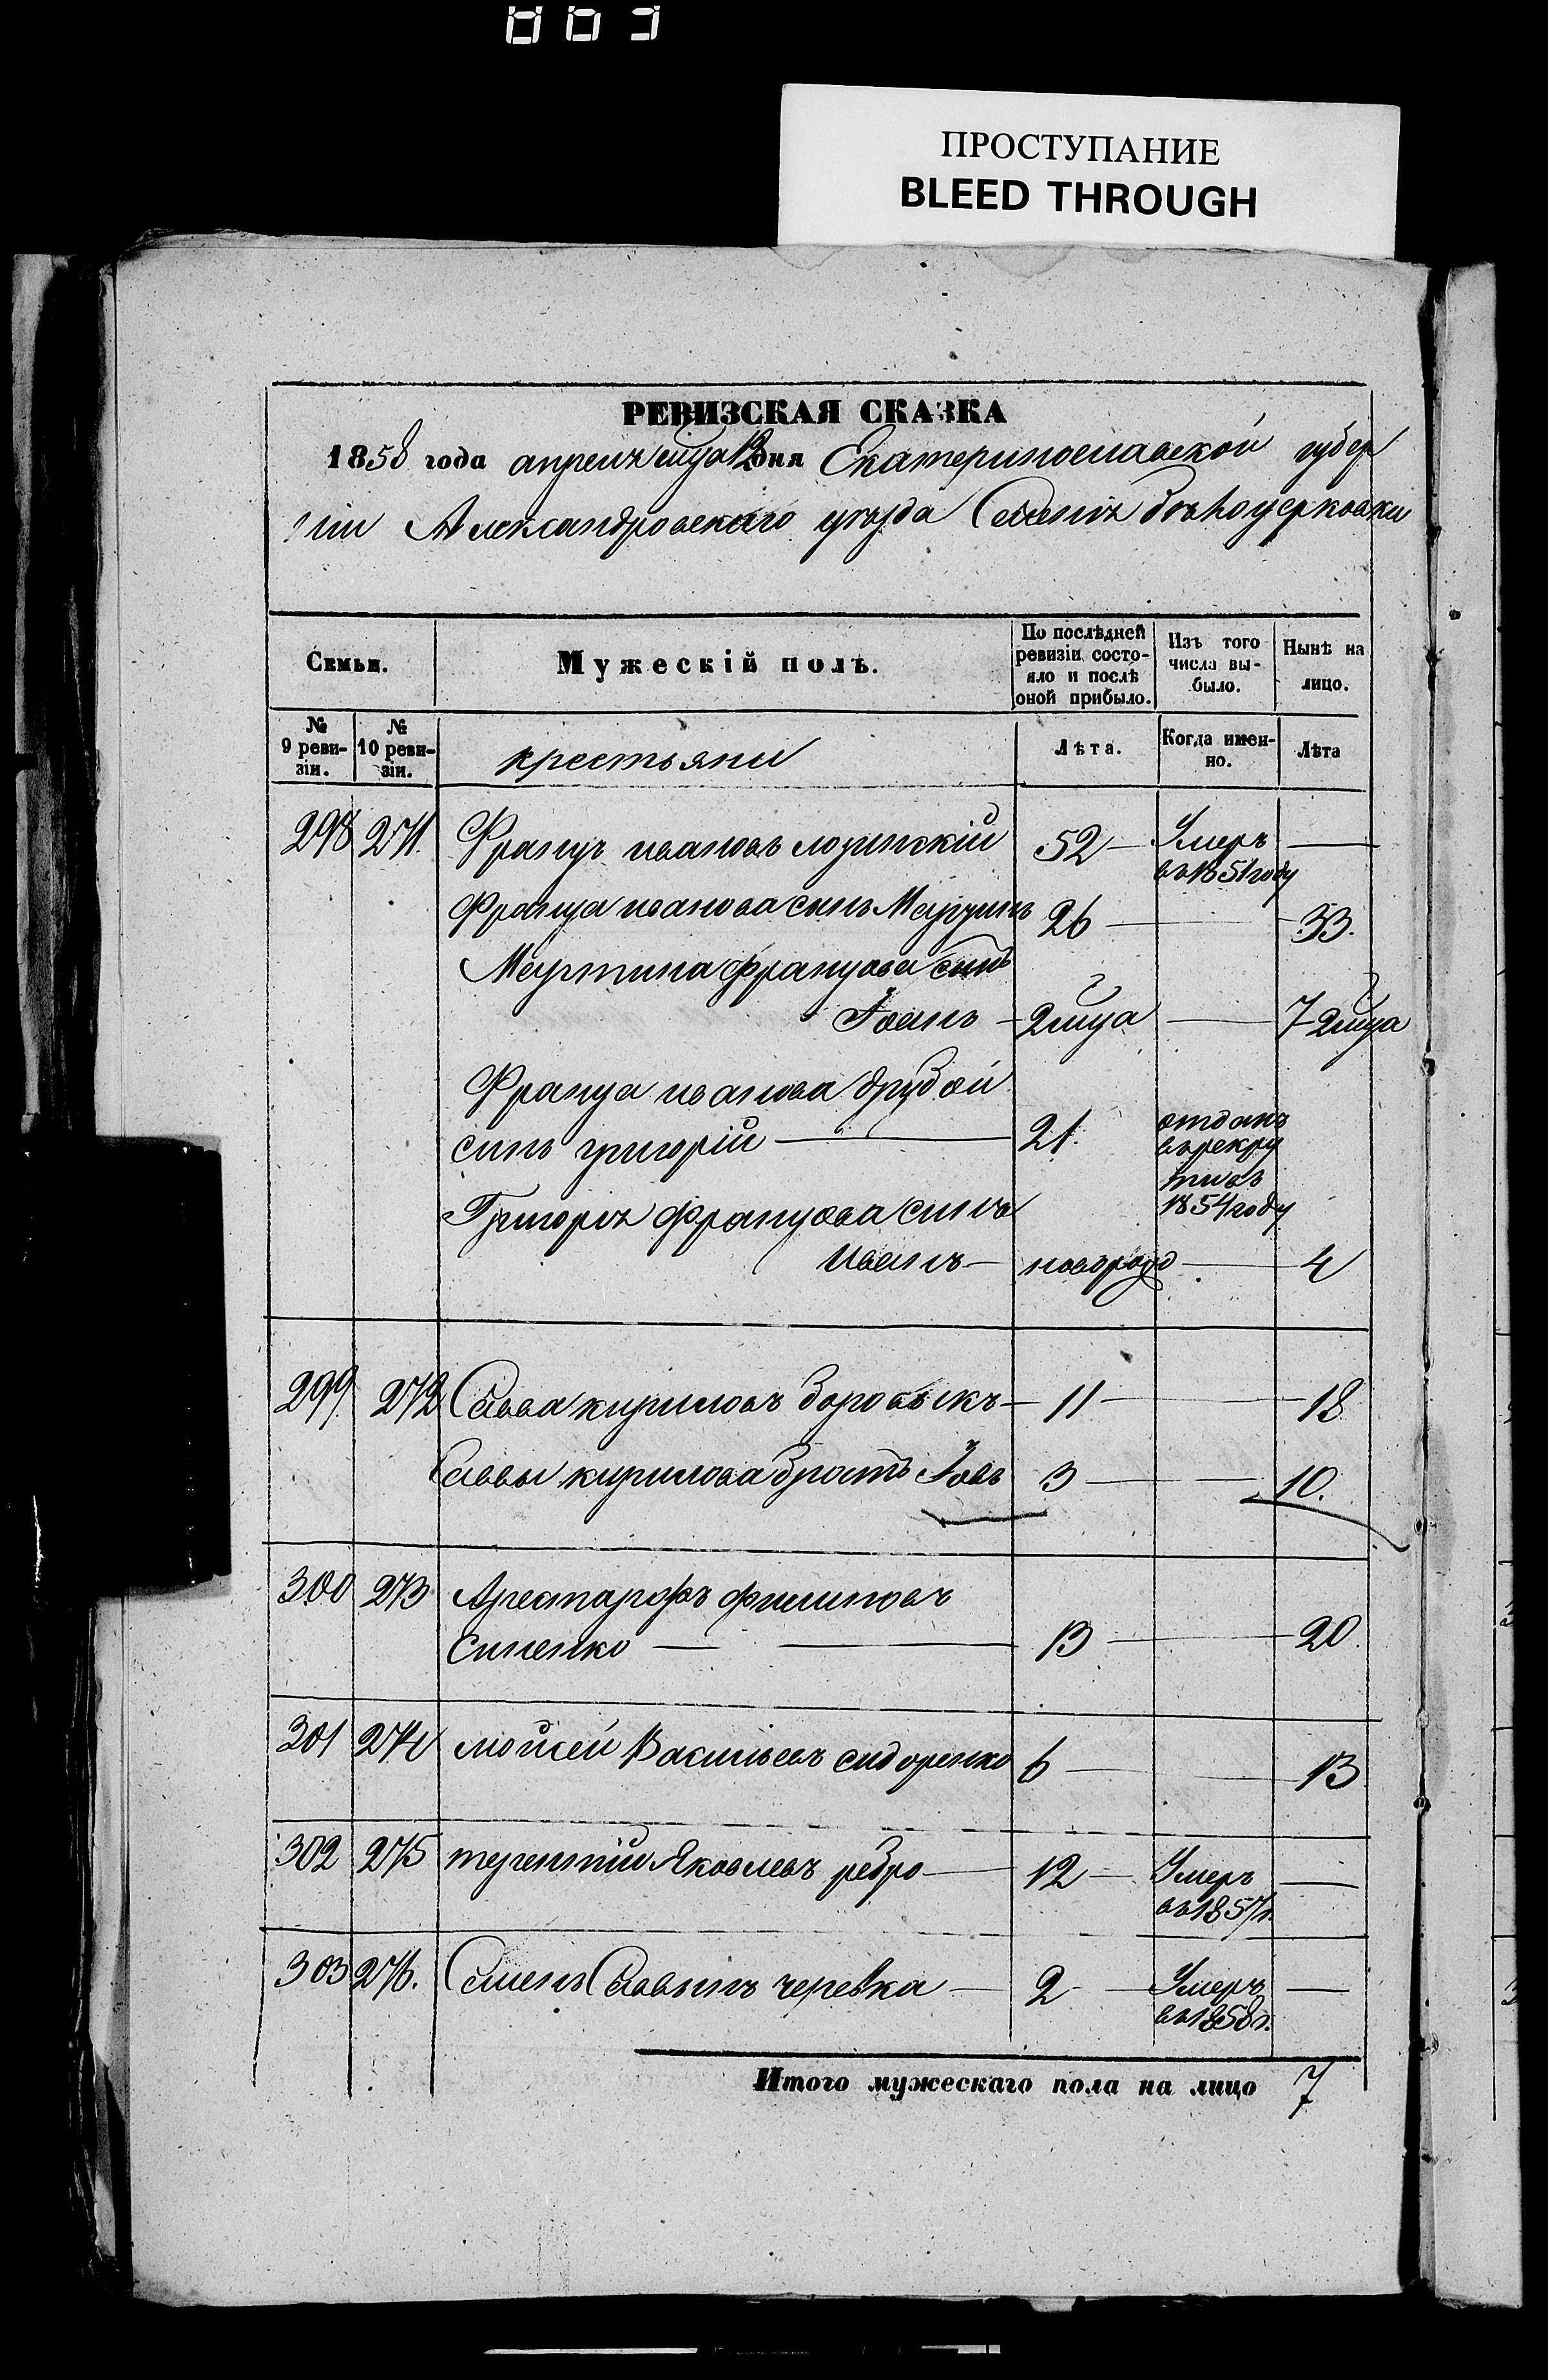 ПРОСТУПАНИЕ
BLEED THROUGH
РЕВИЗСКАЯ СКАЗКА
1858 года апреля мца 12 дня Екатеринославской губер
ніи Александровскаго уѣзда
Семьи.
Мужескій полъ.
По послѣдней ревизіи состояло и послѣ оной прибыло.
Изъ того числа выбыло.
Нынѣ на лицо.
№ 9 ревизіи.
№ 10 ревизіи.
крестьяни
Лѣта.
Когда именно.
Лѣта
298 271 Францъ ивановъ лозинскій 52 — Умеръ —
въ 1851 году
Франца иванова сынъ Мартинъ 26 — 33.
Мартина францова синъ
Іоанъ — 2 мца — 7 2 мца
Франца иванова другой
синъ григорій — 21. отданъ
въ рекру
ти въ
1854 году
Григорія францова синъ
иванъ — новорожд — 4
299 272 Савва кириловъ воробыкъ — 11 — 18
Саввы кирилова братъ Іовъ 3 — 10.
300 273 Арестархъ филиповъ
синенко — 13 — 20.
301 274 моисей Васильевъ сидоренко 6 — 13
302 275 терентій Яковлевъ ребро — 12 — Умеръ —
въ 1857 г.
303 276. Семенъ Саввинъ черевка — 2 — Умеръ —
въ 1858 г.
Итого мужескаго пола на лицо 7